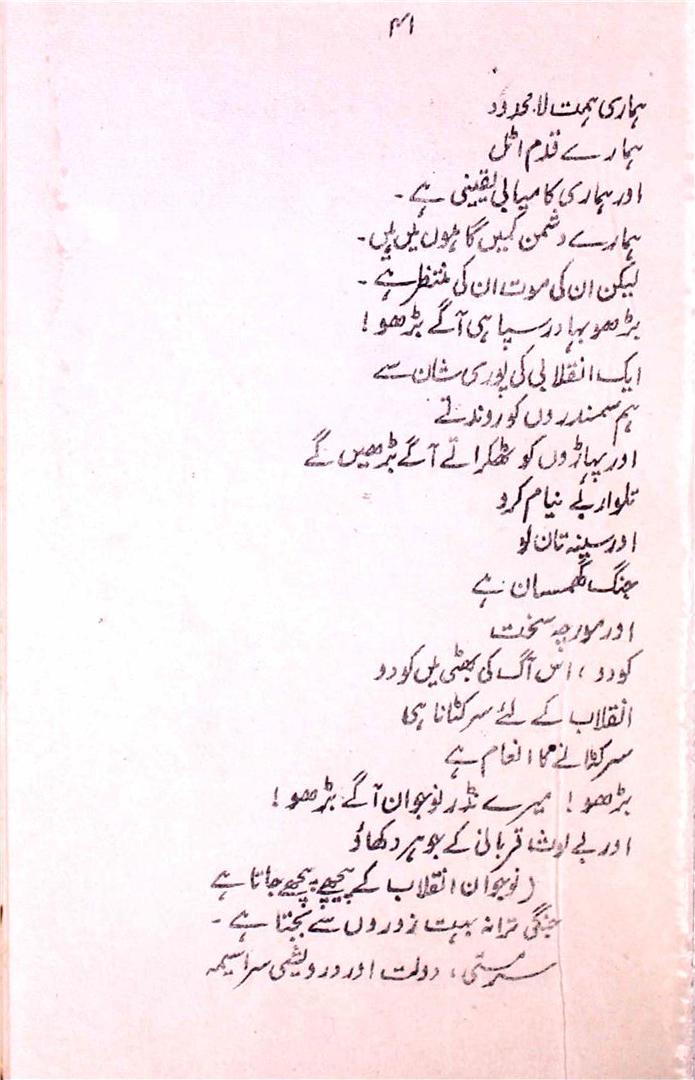 ۴۱
ہماری ہمت لا محدود
ہمارے قدم اٹل
اور ہماری کامیابی یقینی ہے ۔
ہمارے دشمن کمیں گاہوں میں ہیں۔
لیکن ان کی موت ان کی منتظر ہے ۔
بڑھو بہادر سپاہی آگے بڑھو !
ایک انقلابی کی پوری شان سے
ہم سمندروں کو روندتے
اور پہاڑوں کو ٹھکراتے آگے بڑھیں گے
تلوار بے نیام کرو
اور سینہ تان لو
جنگ گھمسان ہے
اور مورچہ سخت
کودو ، اس آگ کی بھٹی میں کودو
انقلاب کے لئے سر کٹانا ہی
سر کٹانے کا انعام ہے
بڑھو ! میرے نڈر نوجوان آگے بڑھو !
اور بے لوث قربانی کے جوہر دکھاؤ
(نوجوان انقلاب کے پیچھے پیچھے جاتا ہے
جنگی ترانہ بہت زوروں سے بجتا ہے ۔
سرمستی ، دولت اور درویشی سراسیمہ